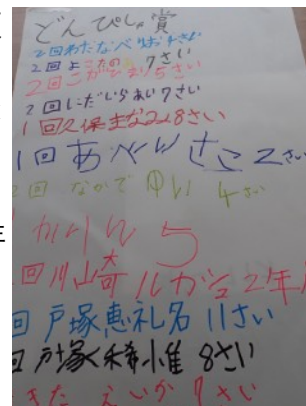 どんぴしゃ賞
2回わたなべりお4さい
2回よこたの 7さい
2回こがひまり5さい
2回にいだいらあい7さい
1回久保生なみ8さい
1回あべりさこ2さい
2回 なかで ゆい 4さい
かりん 5
回川崎 小が2年
回戸塚恵礼名 11さい
回戸塚 8さい
きた えいか 7さい